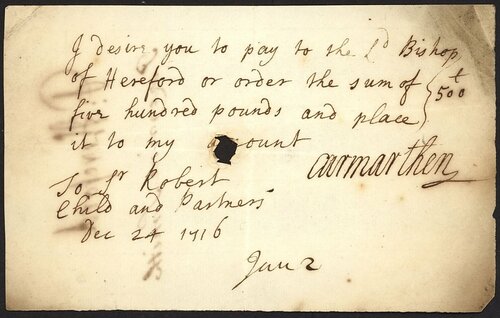 I desire you to pay to the Ld Bishop
of Hereford or order the sum of
five hundred pounds and place
it to my a ount
£
500
Carmarthen
To Sr Robert
Child and Partners
Dec 24 1716
Jan 2